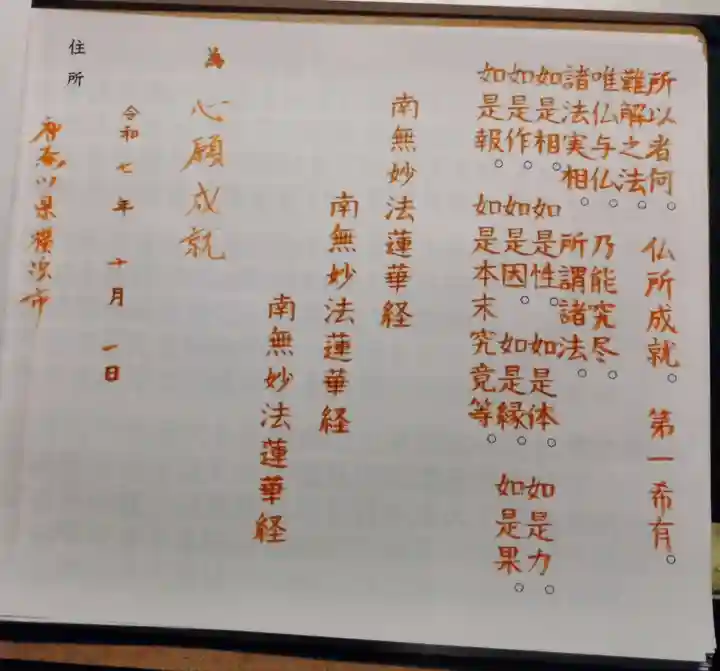 所以者何。仏所成就。第一希有。
難解之法。
唯仏与仏。乃能究尽。
諸法実相。所謂諸法。
如是相。如是性。如是体。如是力。
如是作。如是因。如是縁。如是果。
如是報。如是本末究竟等。
南無妙法蓮華経
南無妙法蓮華経
南無妙法蓮華経
為
心願成就
令和七年十月一日
住所
神奈川県横浜市